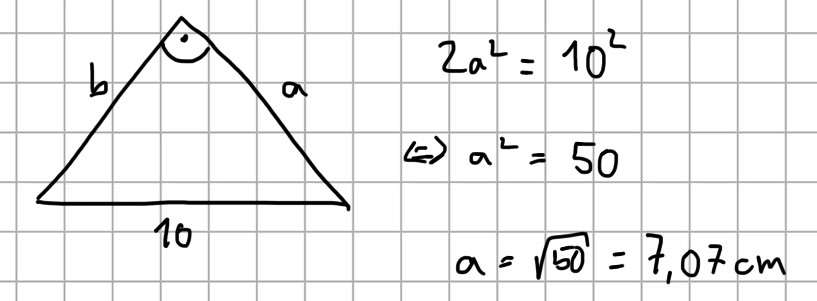 b
a
10
2a² = 10²
⇔ a² = 50
a = √50 = 7,07 cm